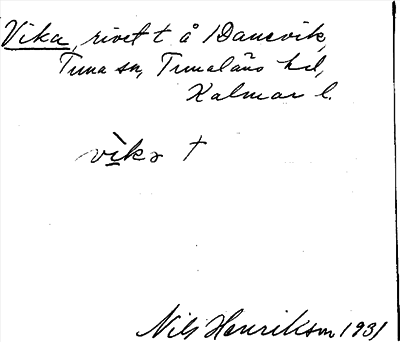 Vika, rivet t å Dansvik,
Tuna sn, Tunaläns hd,
Kalmar l.
vìkə †
Nils Henrikson 1931